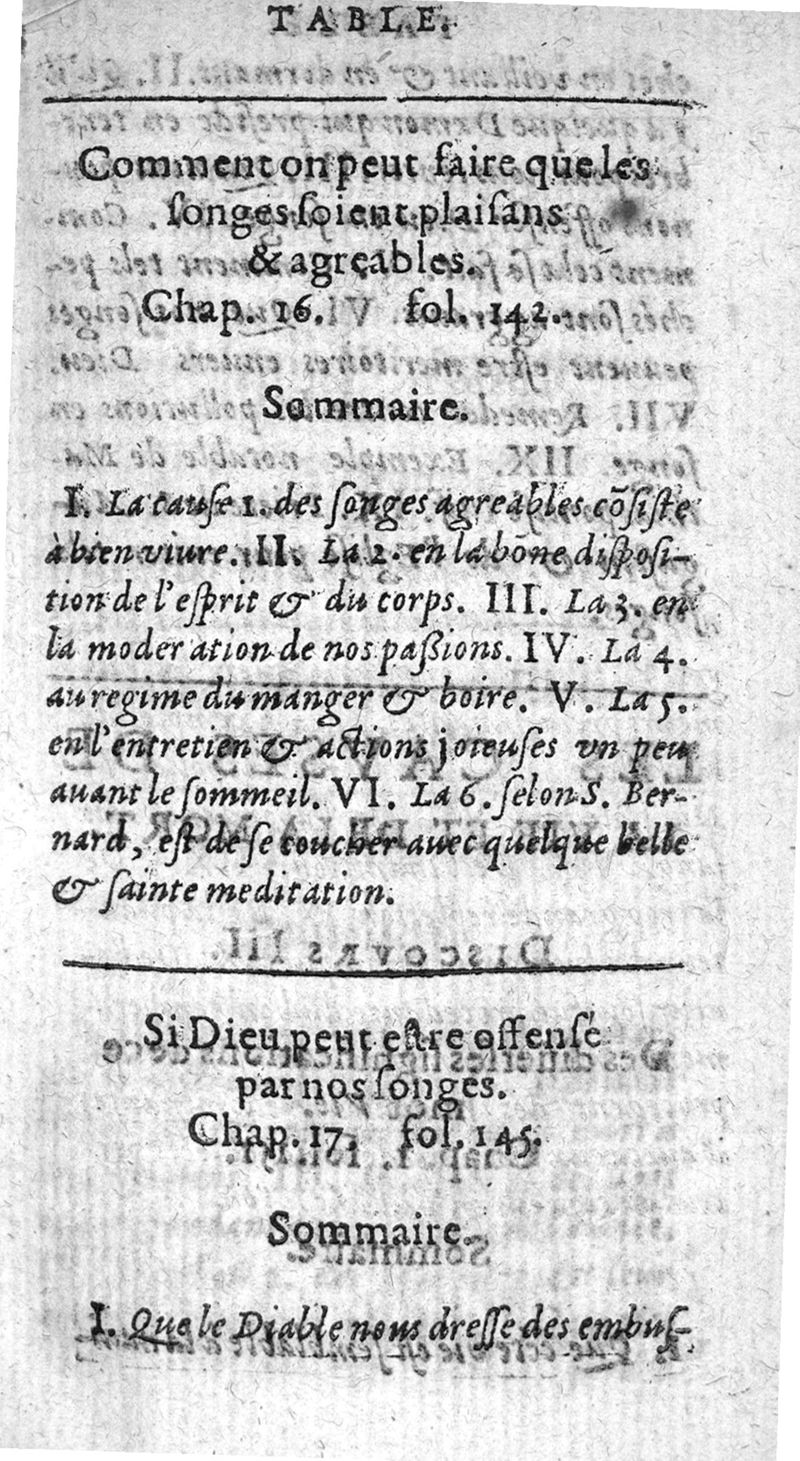 TABLE.
Comment on peut faire que les
ſonges ſoient plaiſans
& agreables.
Chap. 16. fol. 142.
Sommaire.
I. La cauſe 1. des ſonges agreables cõſiste
à bien viure. II. La 2. en la bõne diſpoſi-
tion de l'eſprit & du corps. III. La 3. en
la moderation de nos paßions. IV. La 4.
au regime du manger & boire. V. La 5.
en l'entretien & actions joieuſes vn peu
auant le ſommeil. VI. La 6. ſelon S. Ber-
nard, eſt de ſe coucher auec quelque belle
& ſainte meditation.
Si Dieu peut eſtre offenſé
par nos ſonges.
Chap. 17. fol. 145.
Sommaire.
I. Que le Diable nous dreſſe des embuſ-